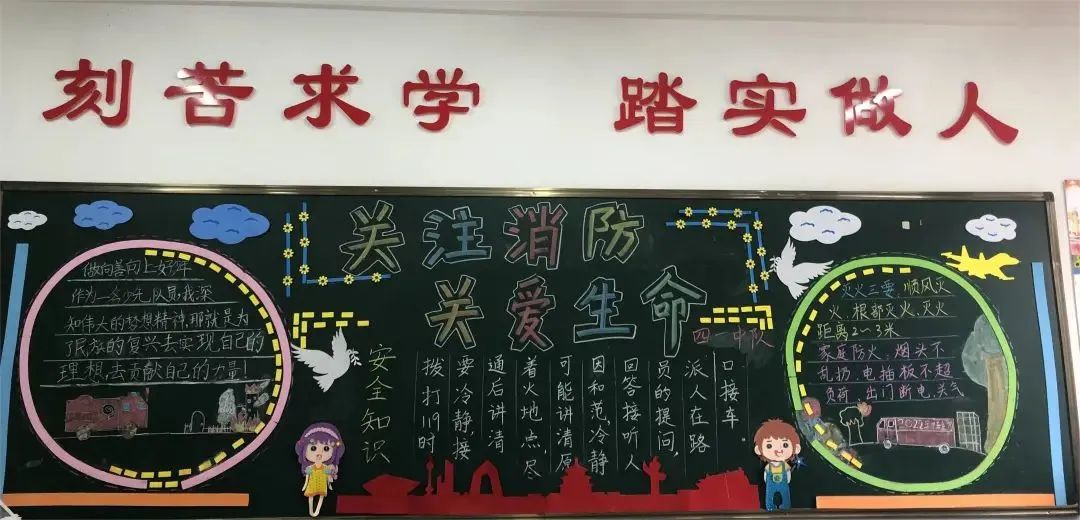 刻苦求学 踏实做人
关注消防
关爱生命
四一中队
做向善向上好少年
作为一名少先队员,我深
知伟大的梦想精神,那就是为
了民族的复兴去实现自己的
理想,去贡献自己的力量!
安全知识
拨打119时
要冷静,接
通后讲清
着火地点,尽
可能讲清原
因和范,冷静
回答接听人
员的提问,
派人在路
口接车.
灭火三要:顺风灭
火、根部灭火、灭火
距离2~3米
家庭防火:烟头不
乱扔,电插板不超
负荷,出门断电、关气